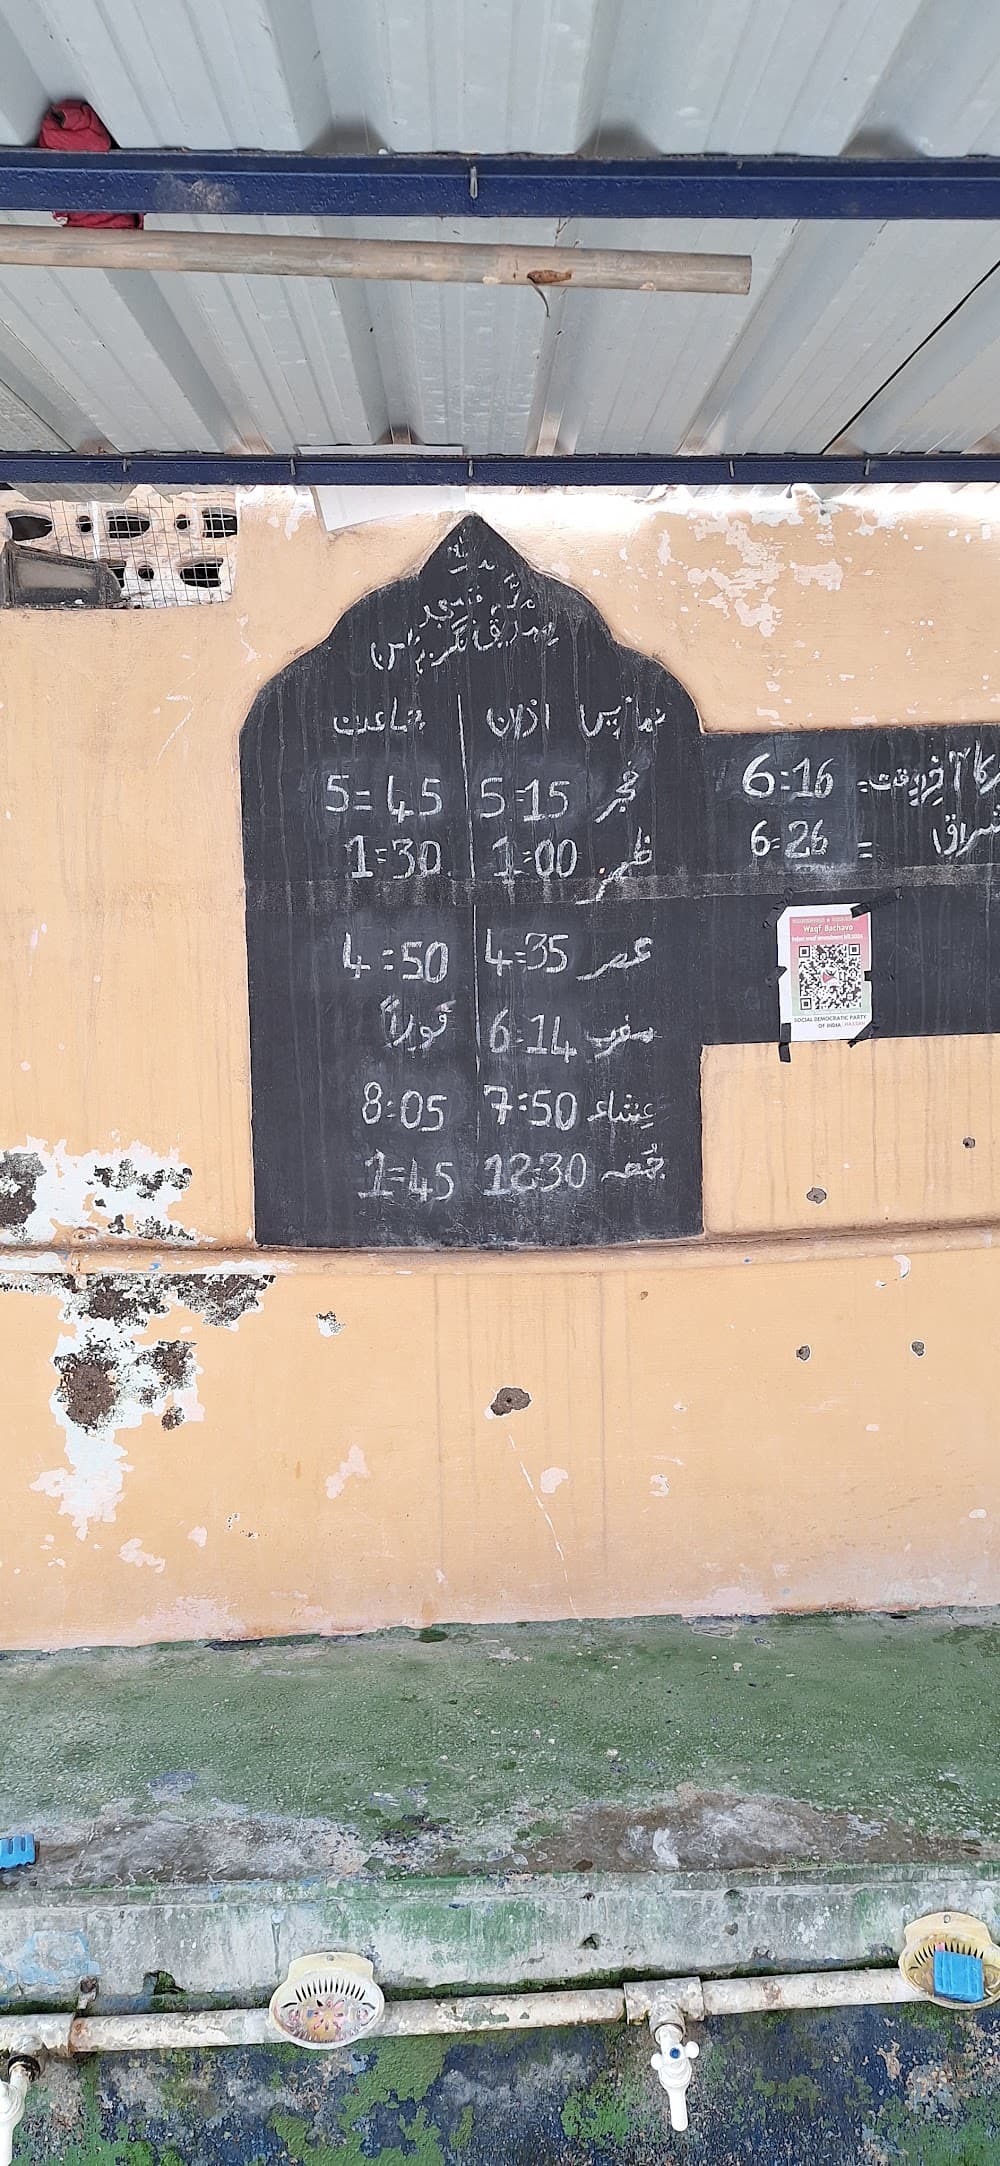 نمازیں اذان جماعت
فجر 5:15 5=45
ظہر 1:00 1:30
عصر 4:35 4:50
مغرب 6:14 فوراً
عشاء 7:50 8:05
جُمعہ 12:30 1=45
آخری وقت= 6:16
= 6:26
Waqf Bachavo
SOCIAL DEMOCRATIC PARTY
OF INDIA, HASSAN